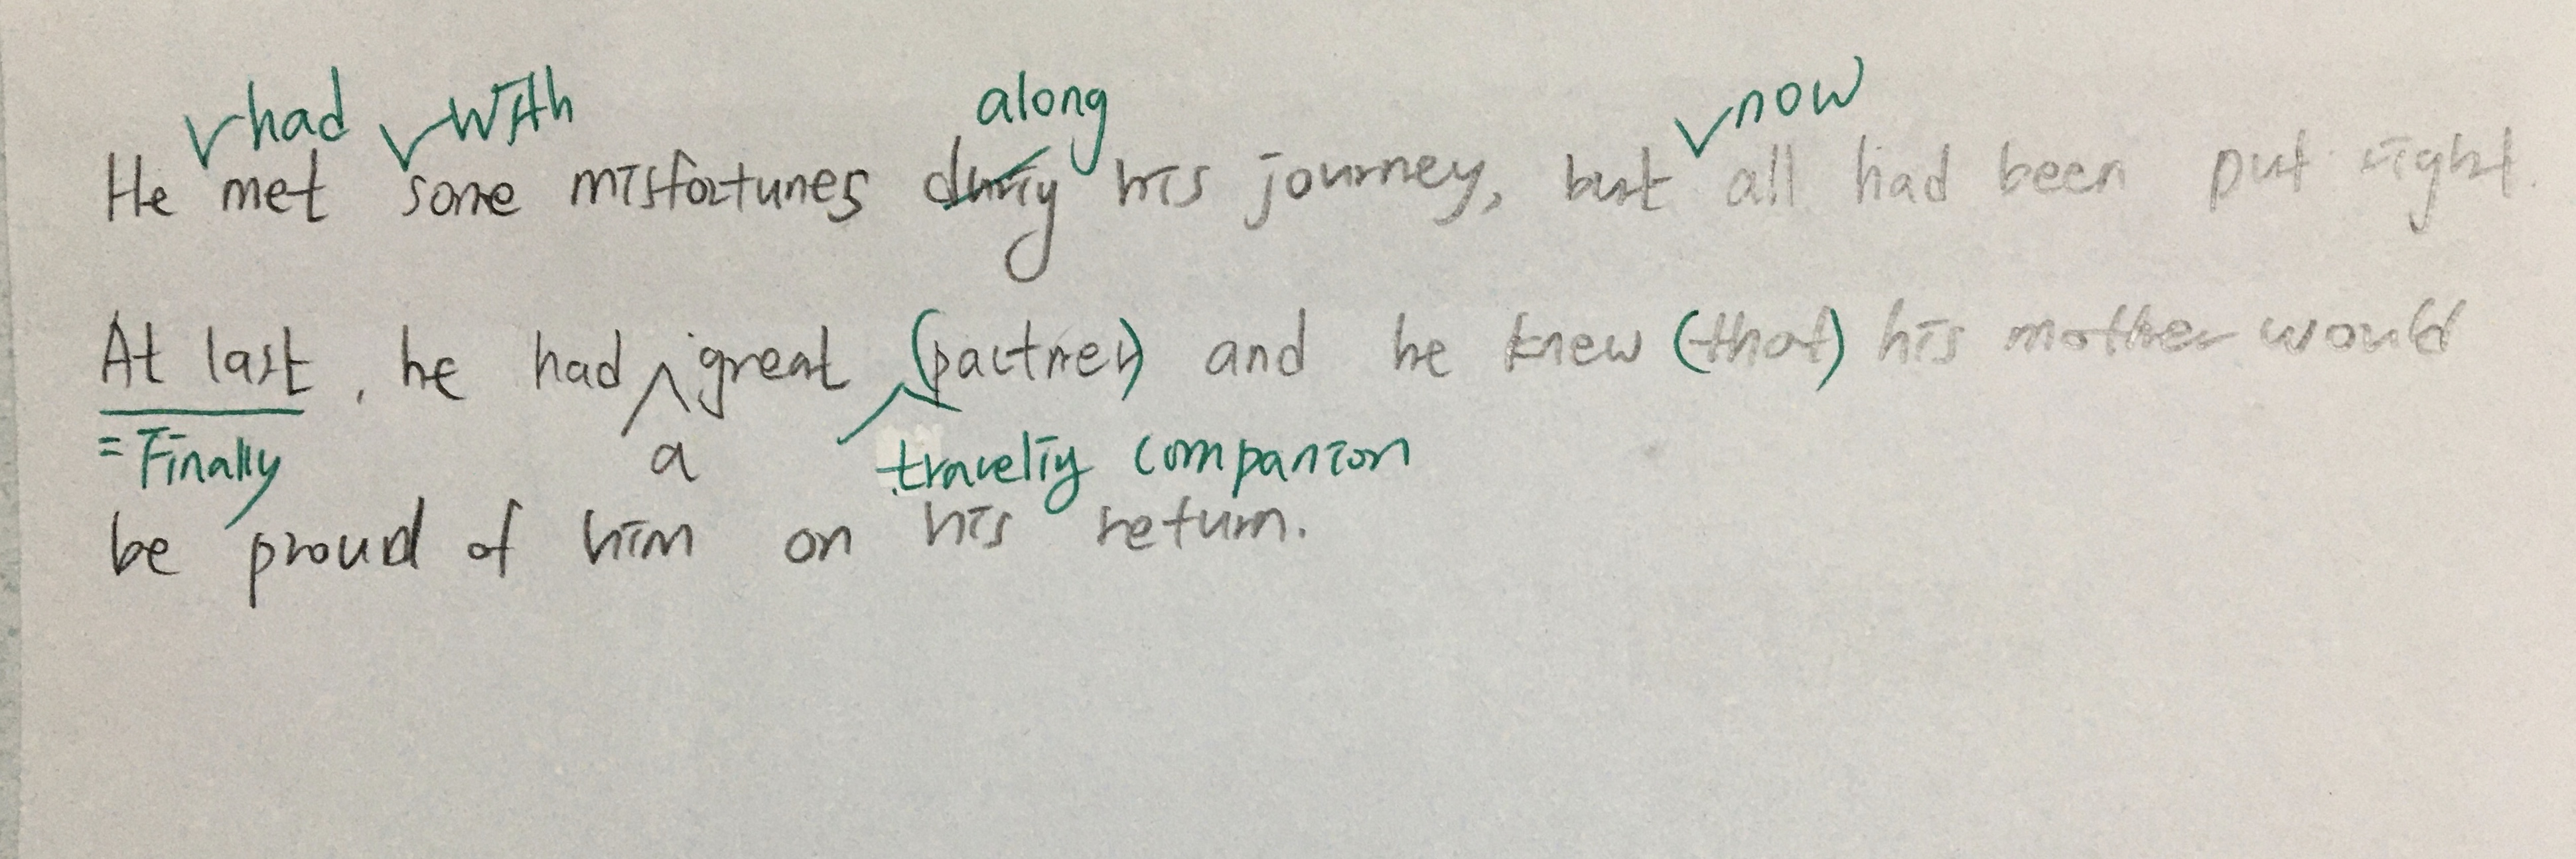 had with along now
He met some misfortunes during his journey, but all had been put right.
At last, he had great (partner) and he knew (that) his mother would
= Finally a traveling companion
be proud of him on his return.